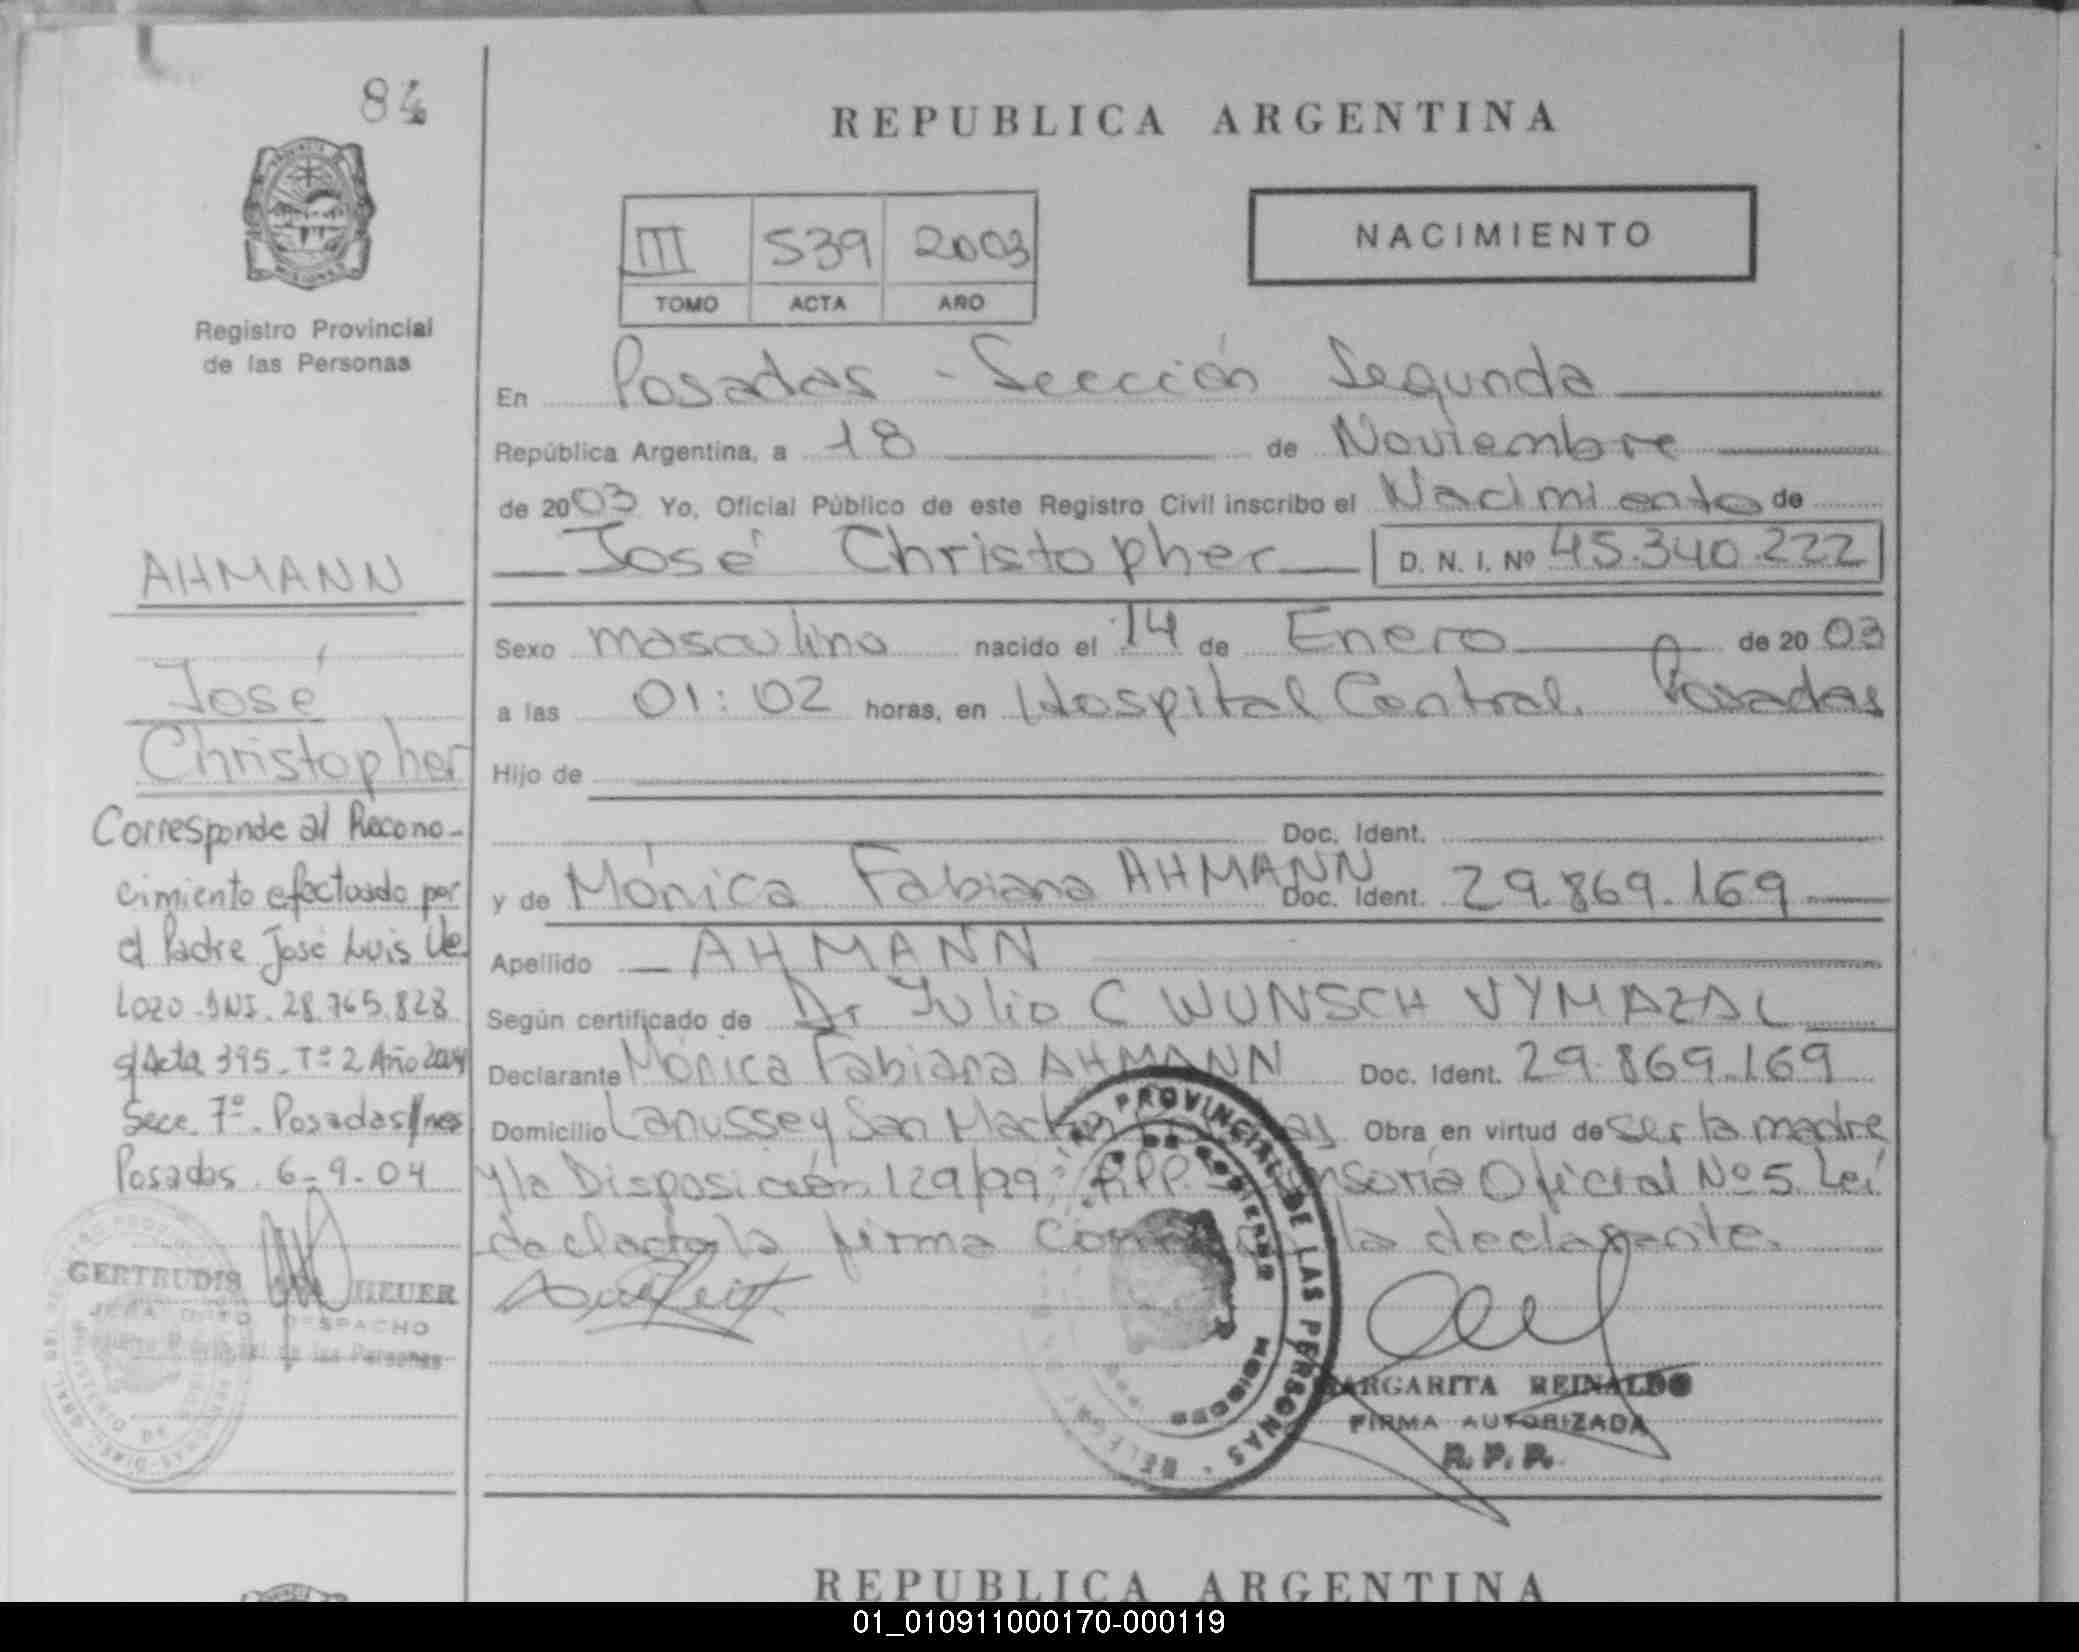 84
Registro Provincial
de las Personas
AHMANN
José
Christopher
Corresponde al Recono-
cimiento efectuado por
el Padre José Luis Ve
Lozo - DNI. 28.765.828
s/Acta 395. Tº 2 Año 2004
Secc. 7º. Posadas
Posadas. 6-9-04
GERTRUDIS HEUER
JEFA DPTO DESPACHO
de las Personas
REPUBLICA ARGENTINA
III 539 2003
TOMO ACTA AÑO
NACIMIENTO
En Posadas - Sección Segunda
República Argentina, a 18 de Noviembre
de 2003 Yo, Oficial Público de este Registro Civil inscribo el Nacimiento de
José Christopher D. N. I. Nº 45.340.222
Sexo masculino nacido el 14 de Enero de 20 03
a las 01:02 horas, en Hospital Central. Posadas
Hijo de
Doc. Ident.
y de Mónica Fabiana AHMANN Doc. Ident. 29.869.169
Apellido AHMANN
Según certificado de Dr Julio C WUNSCH VYMAZAL
Declarante Mónica Fabiana AHMANN Doc. Ident. 29.869.169
Domicilio Lanusse y San Martin Obra en virtud de ser la madre
y la Disposición 129/99, Oficial Nº 5. Leí
da el acta la firma la declarante.
PROVINCIAL DE LAS PERSONAS
MARGARITA REINALDO
FIRMA AUTORIZADA
R. P. P.
REPUBLICA ARGENTINA
01_010911000170-000119